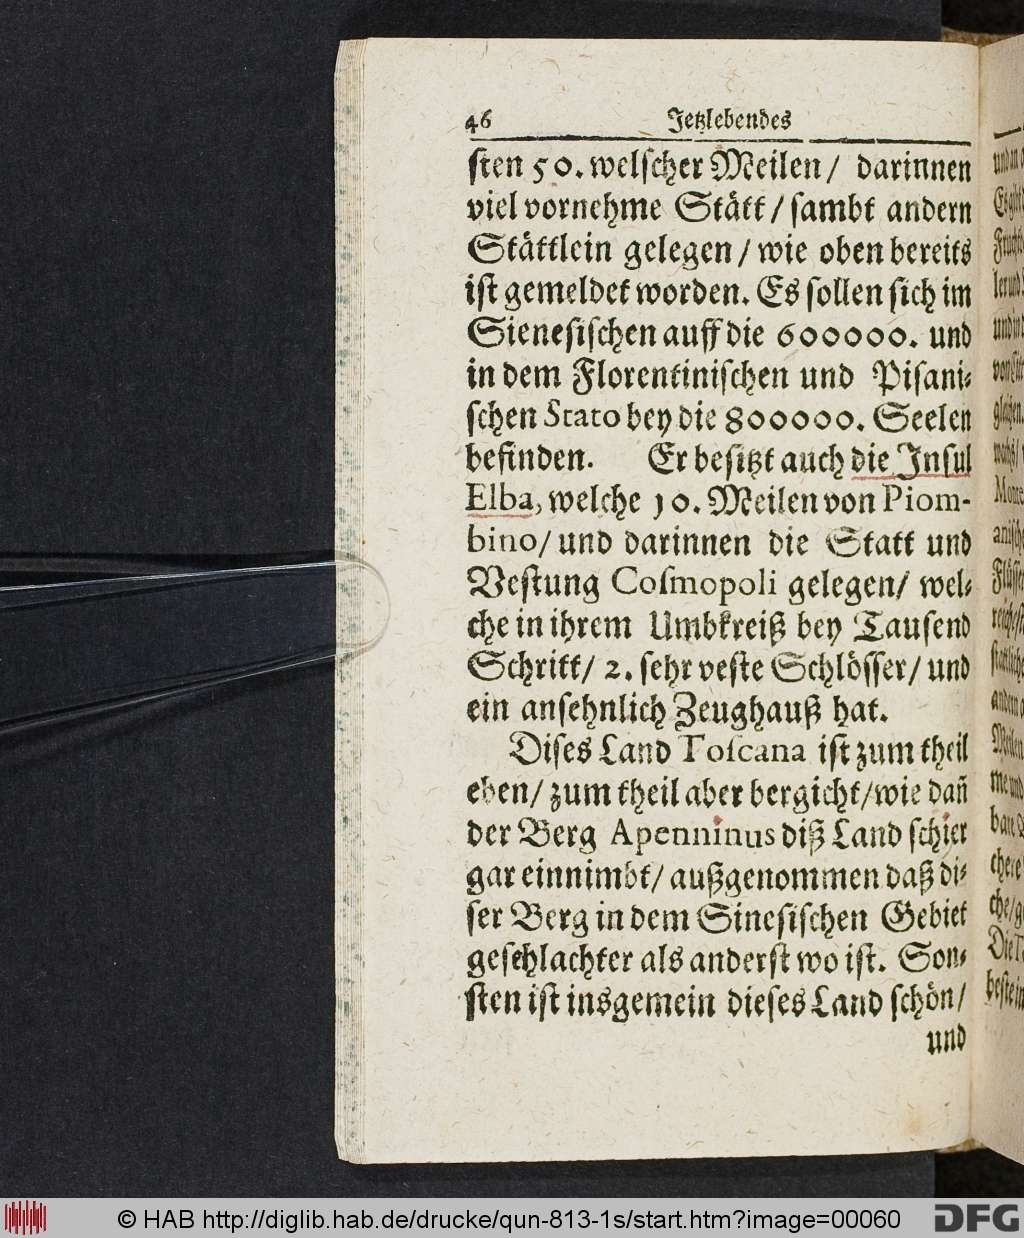 46 Jetzlebendes
sten 50. welscher Meilen/ darinnen
viel vornehme Stätt/ sambt andern
Stättlein gelegen/ wie oben bereits
ist gemeldet worden. Es sollen sich im
Sienesischen auff die 600000. und
in dem Florentinischen und Pisani-
schen Stato bey die 800000. Seelen
befinden. Er besitzt auch die Insul
Elba, welche 10. Meilen von Piom-
bino/ und darinnen die Statt und
Vestung Cosmopoli gelegen/ wel-
che in ihrem Umbkreiß bey Tausend
Schritt/ 2. sehr veste Schlösser/ und
ein ansehnlich Zeughauß hat.
Dises Land Toscana ist zum theil
eben/ zum theil aber bergicht/wie dañ
der Berg Apenninus diß Land schier
gar einnimbt/ außgenommen daß di-
ser Berg in dem Sinesischen Gebiet
geschlachter als anderst wo ist. Son-
sten ist insgemein dieses Land schön/
und
© HAB http://diglib.hab.de/drucke/qun-813-1s/start.htm?image=00060
DFG